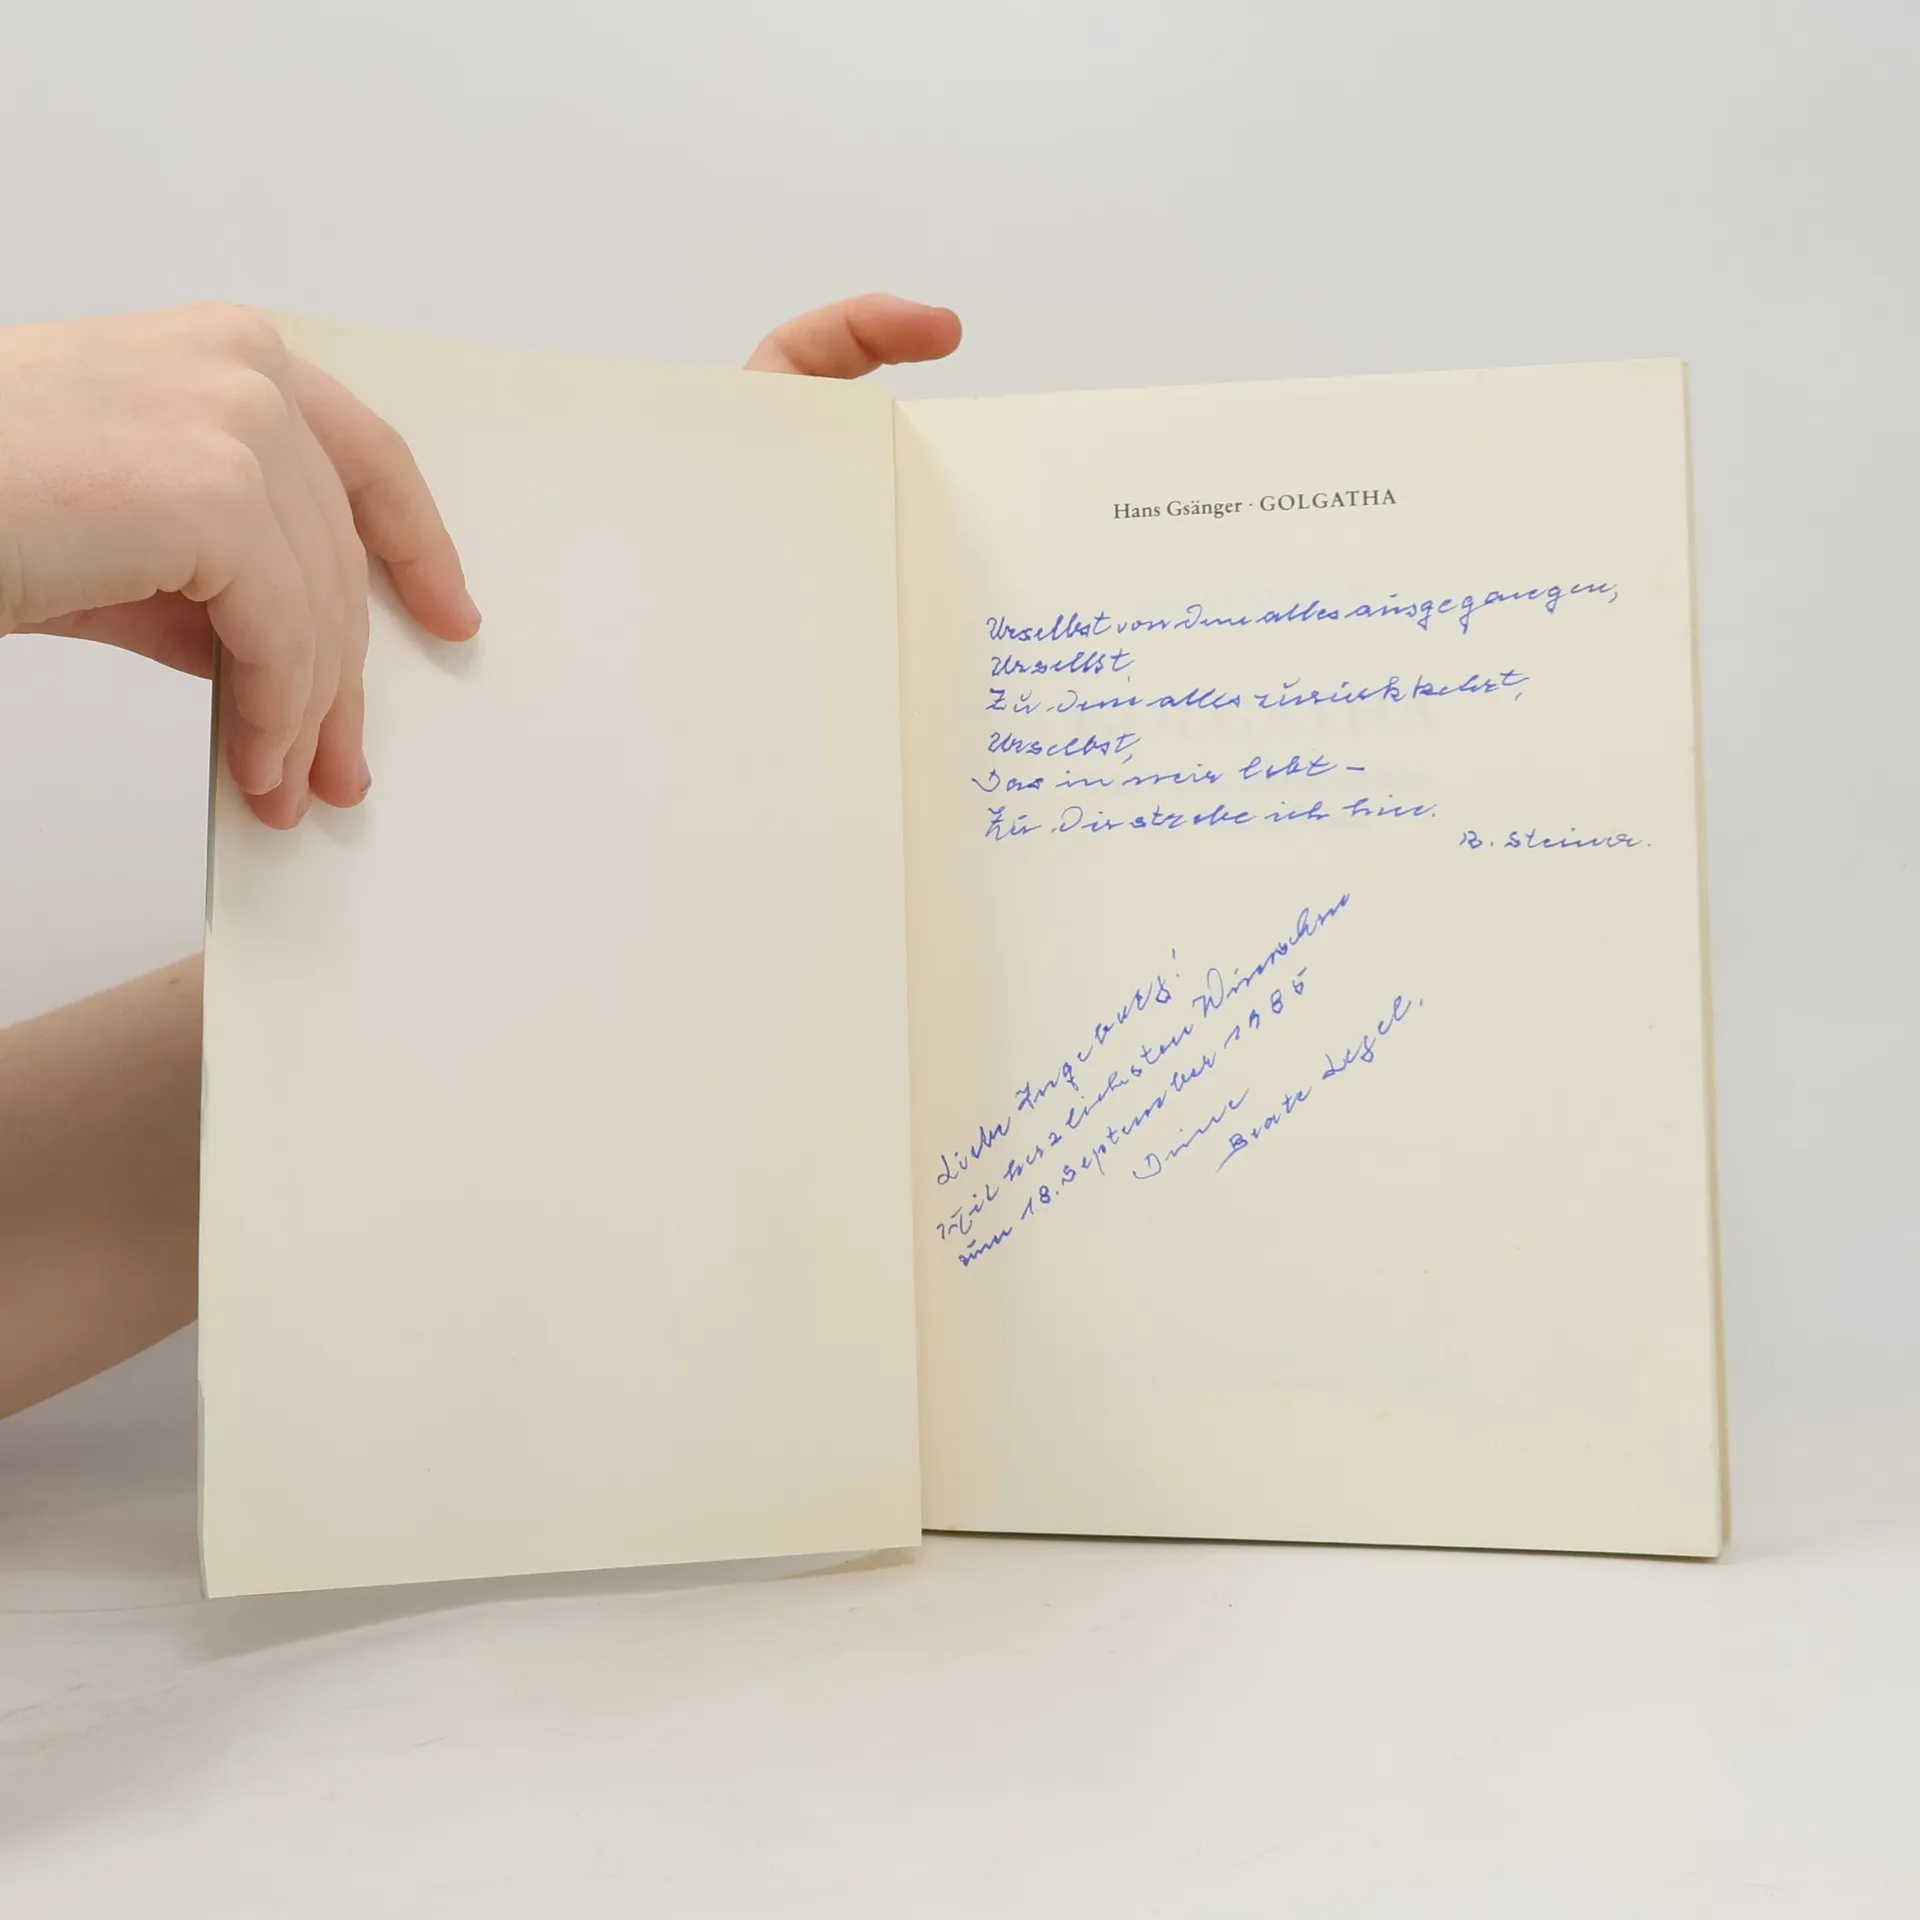 Hans Gsänger · GOLGATHA
Urselbst von Dem alles ausgegangen,
Urselbst
Zu Dem alles zurückkehrt,
Urselbst,
Das in mir lebt –
Zu Dir strebe ich hin.
R. Steiner.
Liebe Ingeburg!
Mit herzlichsten Wünschen
zum 18. September 1985
Deine
Beate